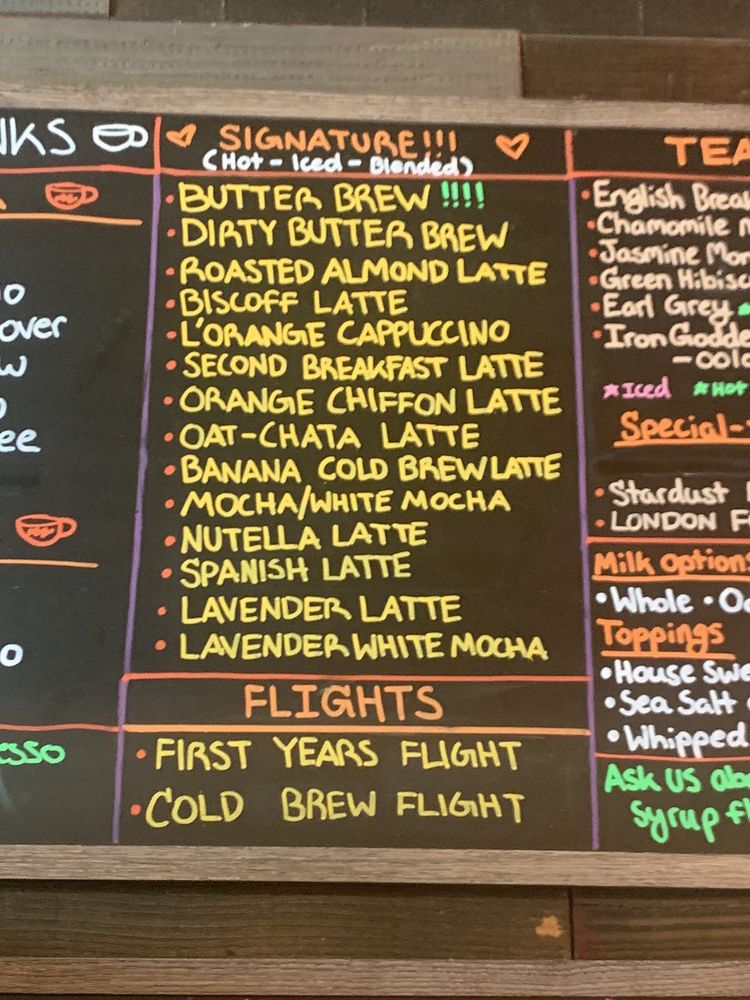 SIGNATURE!!!
(Hot - Iced - Blended)
• BUTTER BREW !!!!
• DIRTY BUTTER BREW
• ROASTED ALMOND LATTE
• BISCOFF LATTE
• L'ORANGE CAPPUCCINO
• SECOND BREAKFAST LATTE
• ORANGE CHIFFON LATTE
• OAT-CHATA LATTE
• BANANA COLD BREW LATTE
• MOCHA/WHITE MOCHA
• NUTELLA LATTE
• SPANISH LATTE
• LAVENDER LATTE
• LAVENDER WHITE MOCHA
FLIGHTS
• FIRST YEARS FLIGHT
• COLD BREW FLIGHT
• English
• Chamomile
• Jasmine
• Green
• Earl Grey
• Iron
★Iced ★Hot
Special-
• Stardust
• LONDON
Milk Options
• Whole •
Toppings
• House
• Sea Salt
• Whipped
Ask us
Syrup